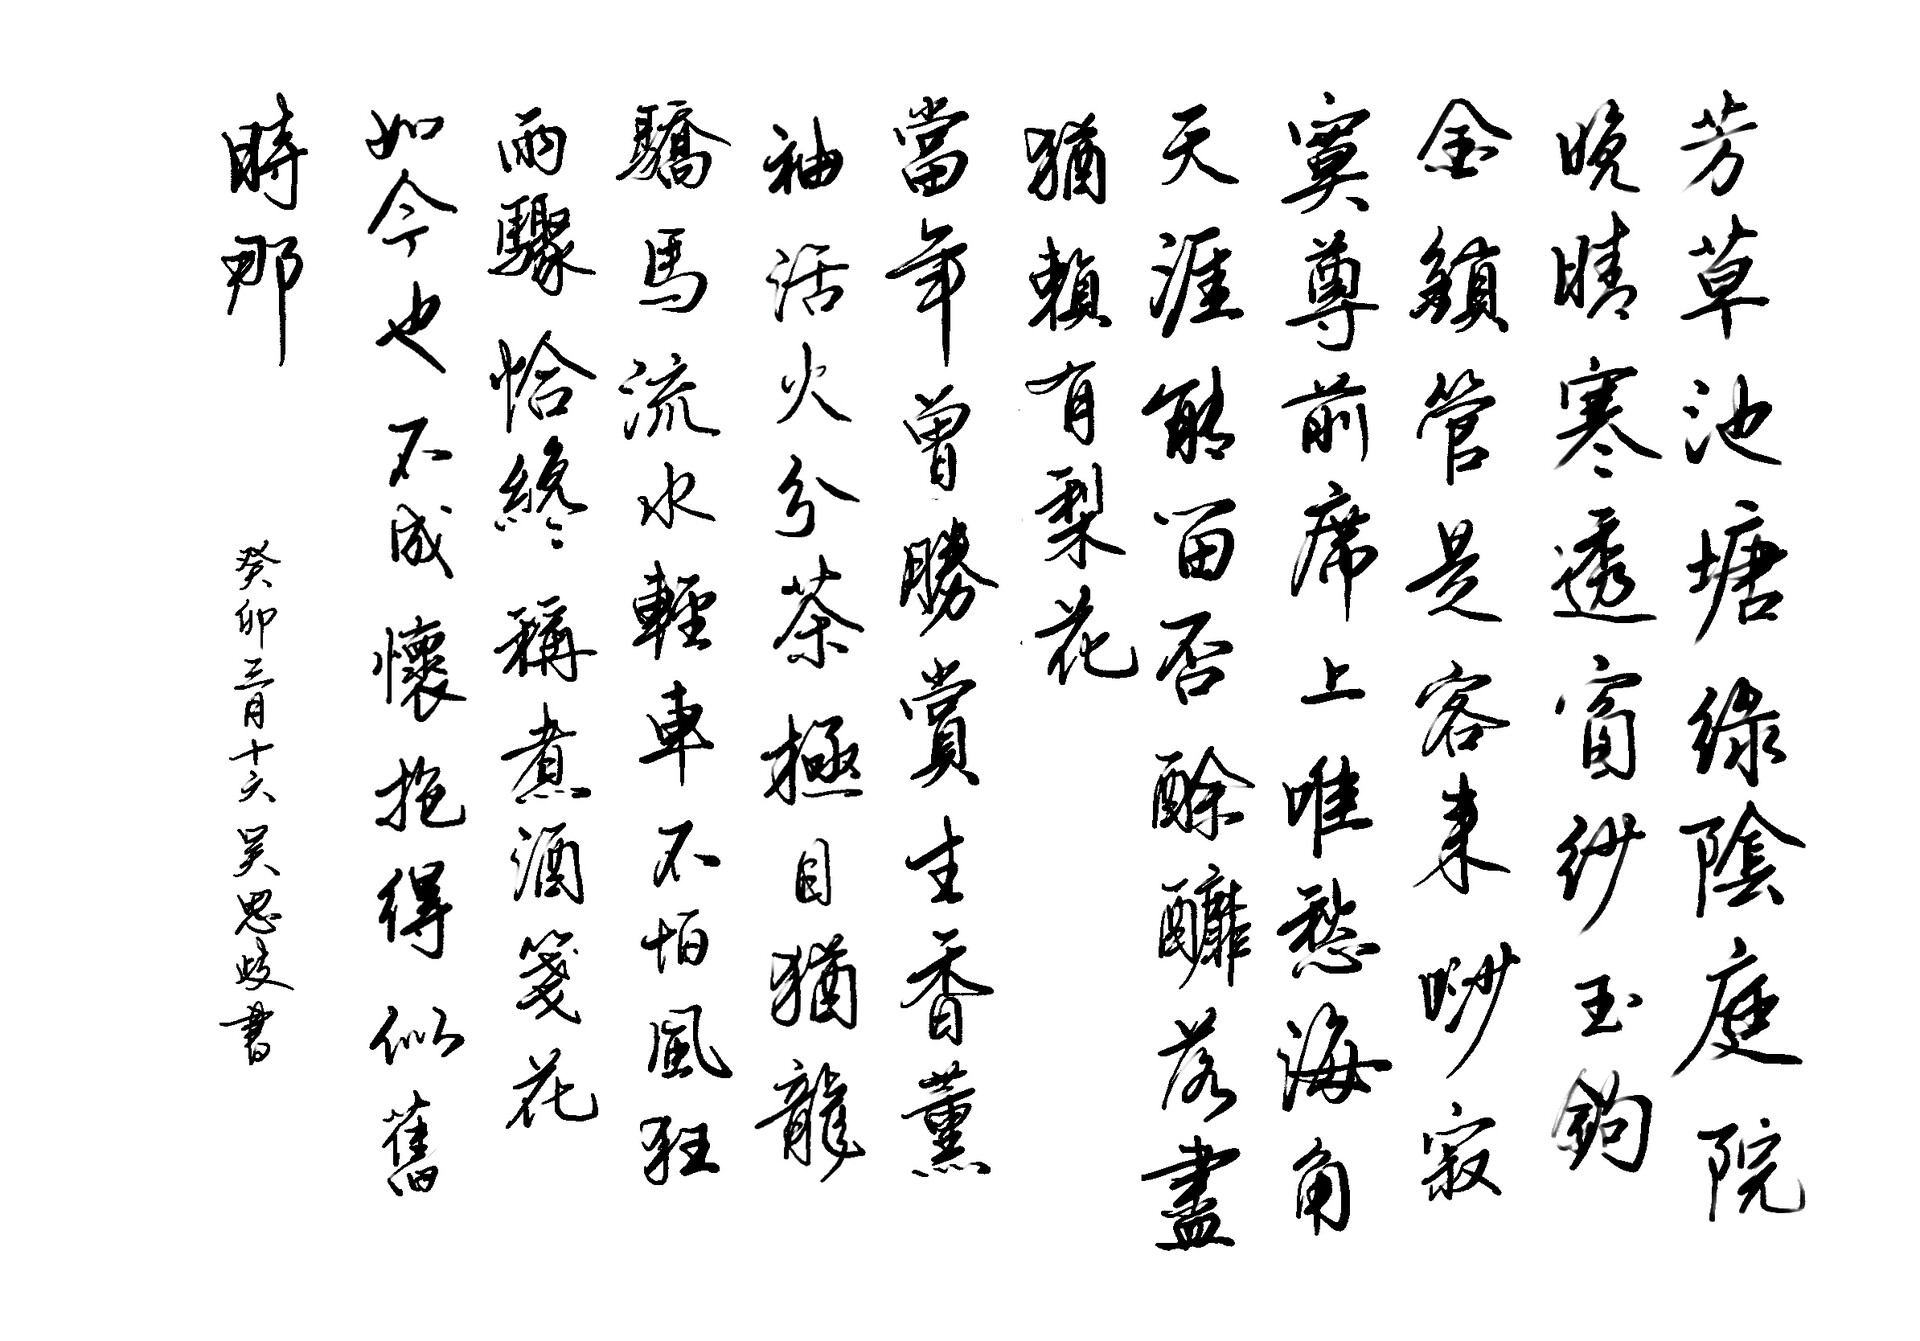 芳草池塘綠陰庭院
晚晴寒透窗紗玉鉤
金鎖管是客來唦寂
寞尊前席上唯愁海角
天涯能留否酴釄落盡
猶賴有梨花
當年曾勝賞生香薰
袖活火分茶極目猶龍
驕馬流水輕車不怕風狂
雨驟恰纔稱煮酒箋花
如今也不成懷抱得似舊
時那
癸卯三月十六吳思歧書